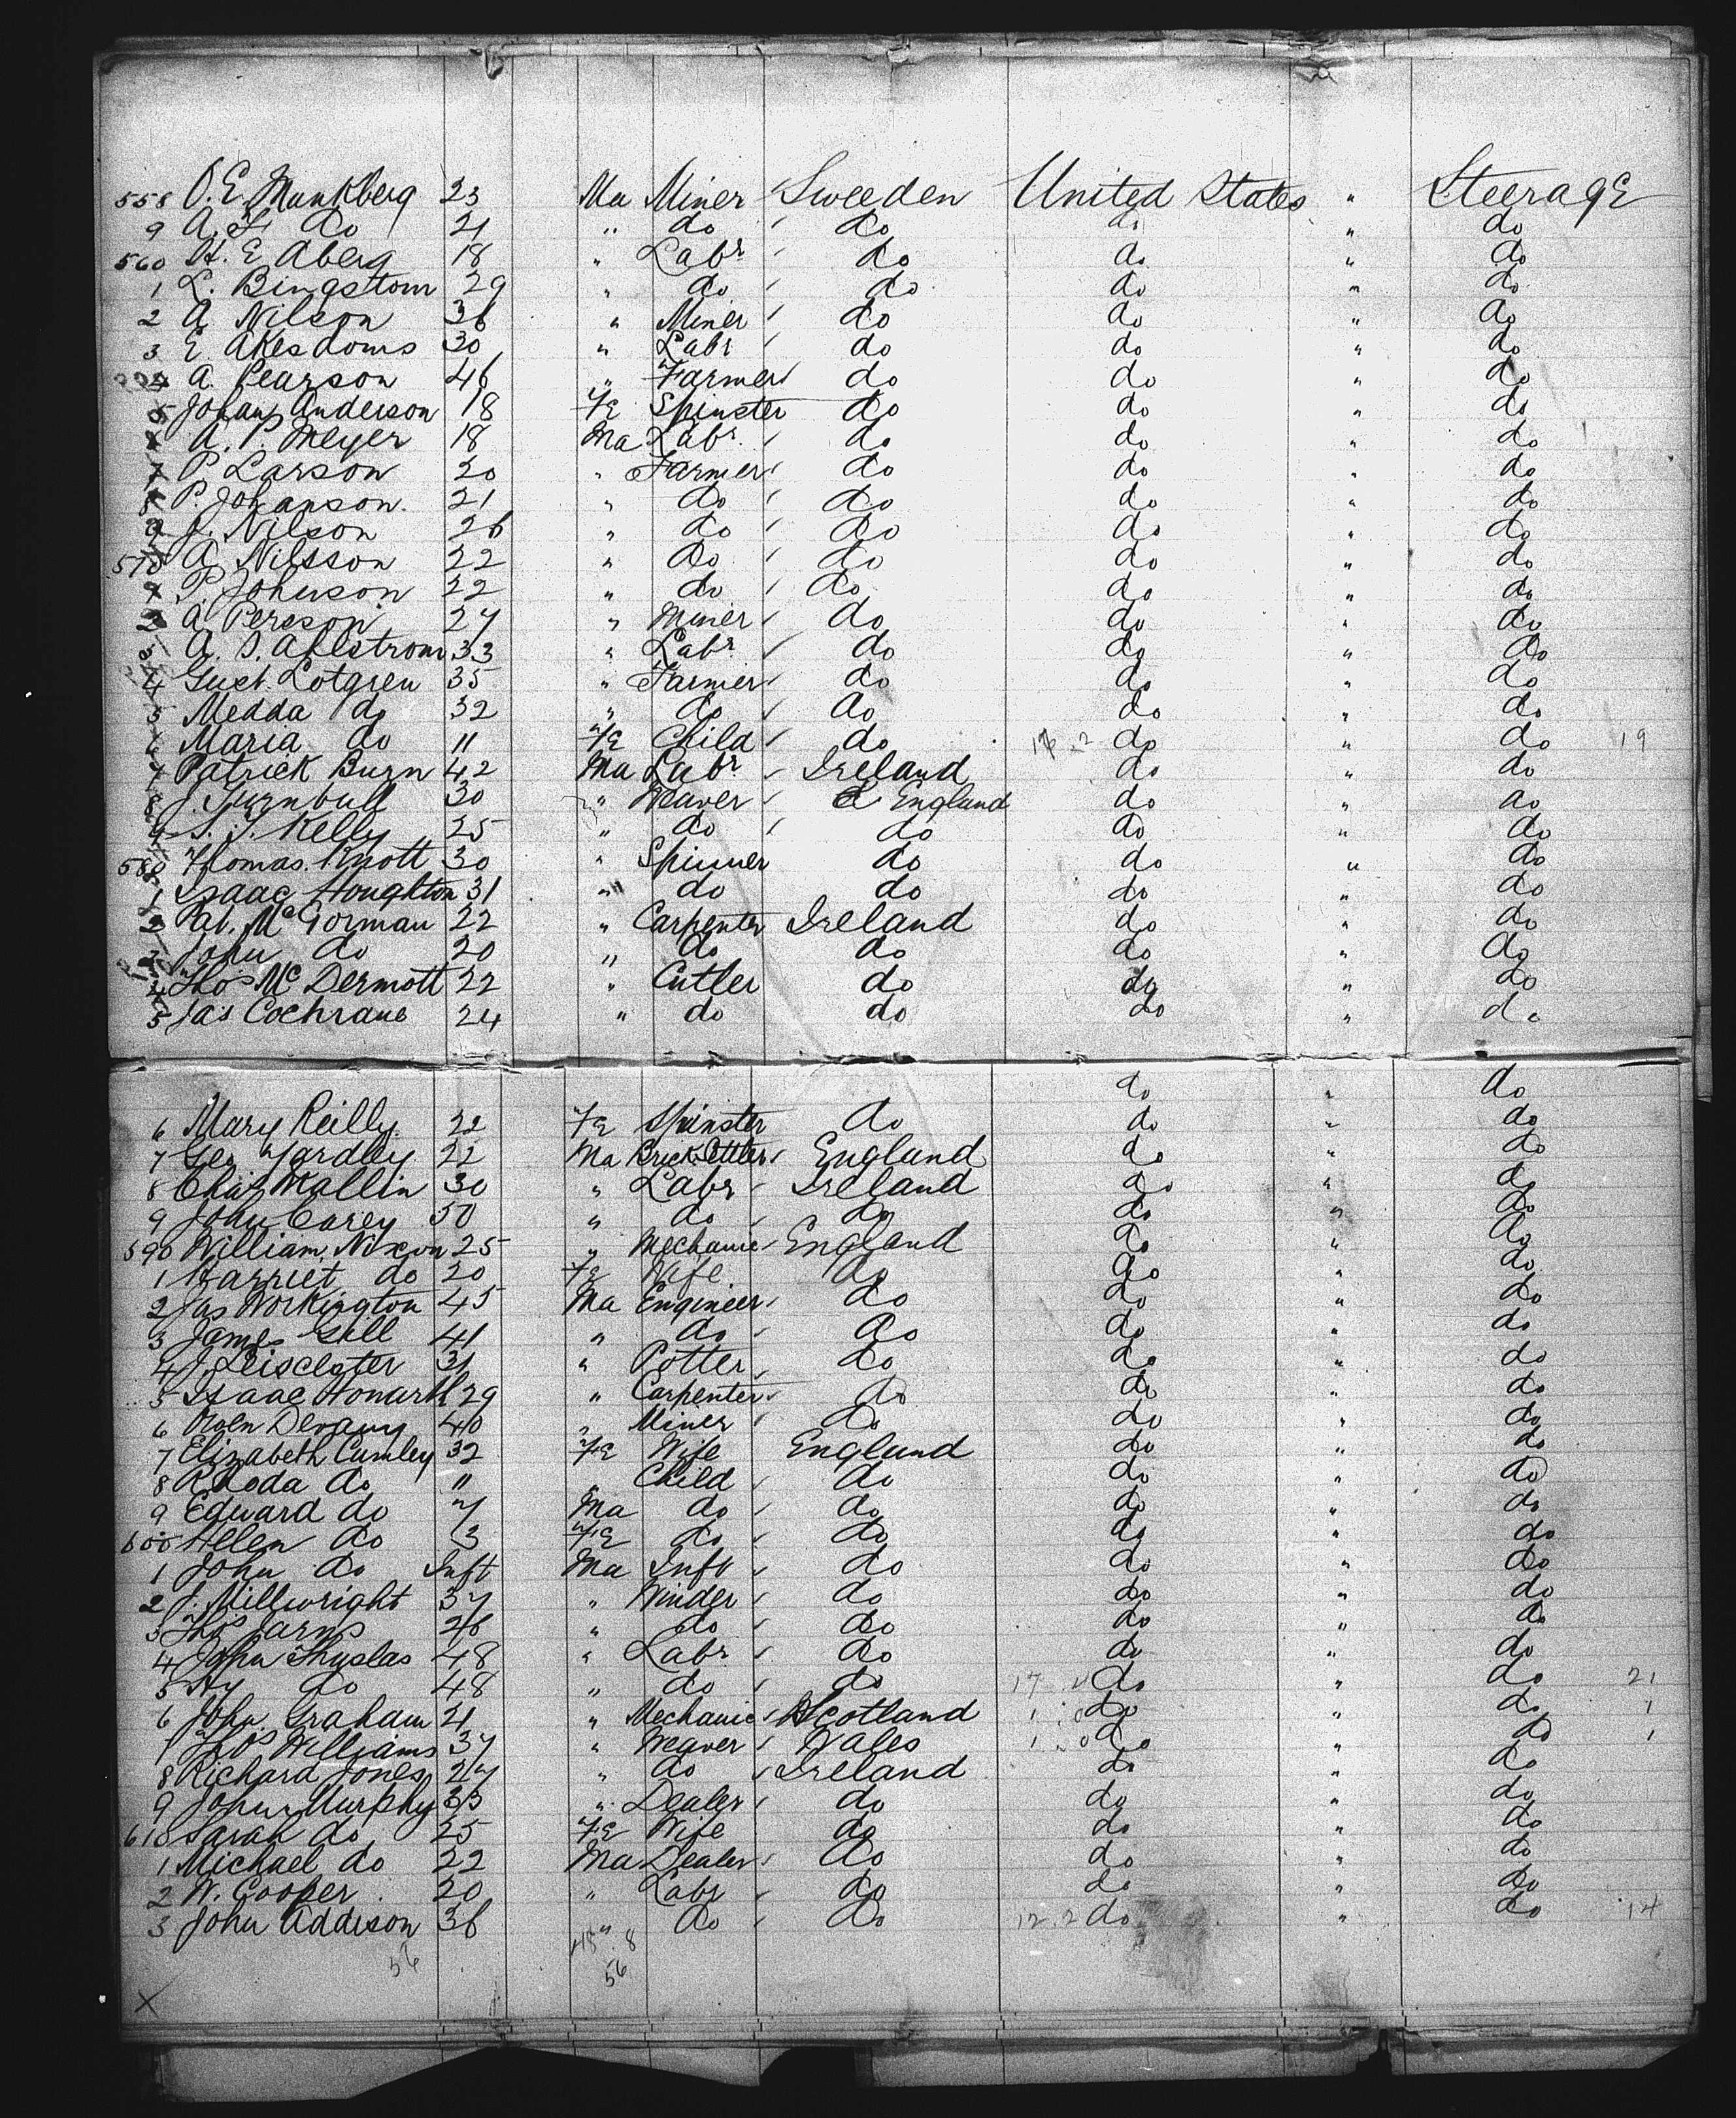 558 O. E. Munkberg 23 Ma Miner Sweeden United States " Steerage
9 A. F. do 21 " do do do " do
560 H. E Aberg 18 " Labr do do " do
1 L. Bingstom 29 " do do do " do
2 A. Nilson 36 " Miner do do " do
3 E. Akesdoms 30 " Labr do do " do
4 A. Pearson 46 " Farmer do do " do
5 Johan Anderson 18 Fe Spinster do do " do
A. P. Meyer 18 Ma Labr. do do " do
7 P Larson 20 " Farmer do do " do
8 P. Johanson. 21 " do do do " do
9 J. Nilson 26 " do do do " do
570 A. Nilsson 22 " do do do " do
P. Johnson 22 " do do do " do
2 A Persson 27 " Miner do do " do
3 A. S. Ahlstrom 33 " Labr do do " do
4 Gust. Lotgren 35 " Farmer do do " do
5 Medda do 32 " do do do " do
6 Maria do 11 Fe Child do do " do 19
7 Patrick Burn 42 Ma Labr Ireland do " do
8 J. Turnbull 30 " Weaver England do " do
9 S. J. Kelly 25 " do do do " do
580 Thomas Knott 30 " Spinner do do " do
1 Isaac Houghton 31 " do do do " do
2 Pat. McGorman 22 " Carpenter Ireland do " do
3 John do 20 " do do do " do
4 Thos McDermott 22 " Cutler do do " do
5 Jas Cochrane 24 " do do do " do
do " do
6 Mary Reilly. 22 Fe Spinster do do " do
7 Geo Yardley 22 Ma England do " do
8 Chas Mallin 30 " Labr Ireland do " do
9 John Carey 50 " do do do " do
590 William Nixon 25 " Mechanic England do " do
1 Harriet do 20 Fe Wife do do " do
2 Jas Workington 45 Ma Engineer do do " do
3 James Gill 41 " do do do " do
4 J. Leisclater 31 " Potter do do " do
5 Isaac Honarth 29 " Carpenter do do " do
6 Owen Devany 40 " Miner do do " do
7 Elizabeth Cumley 32 Fe Wife England do " do
8 Rhoda do 11 " Child do do " do
9 Edward do 7 Ma do do do " do
600 Hellen do 3 Fe do do do " do
1 John do Inft Ma Inft do do " do
2 J. Millwright 37 " Winder do do " do
3 Thos Jarns 26 " do do do " do
4 John Thuslas 48 " Labr do do " do
5 Hy do 48 " do do 17 do " do 21
6 John Graham 21 " Mechanic Scotland 1 do " do 1
7 Thos Williams 37 " Weaver Wales 1 do " do 1
8 Richard Jones 27 " do Ireland do " do
9 John Murphy 33 " Dealer do do " do
610 Sarah do 25 Fe Wife do do " do
1 Michael do 22 Ma Dealer do do " do
2 W. Cooper 20 " Labr do do " do
3 John Addison 36 " do do 12.2 do " do 14
56 48 8
56
X